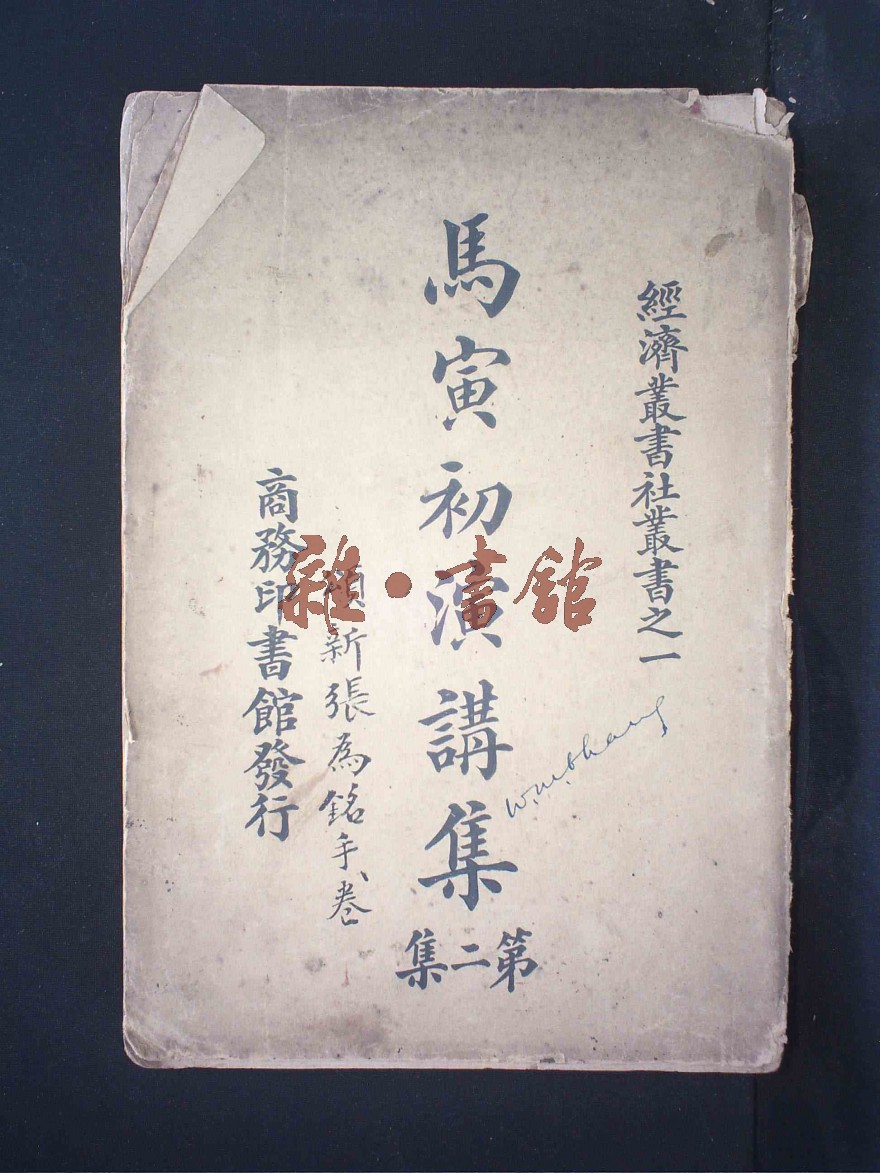 經濟叢書社叢書之一
馬寅初演講集
第二集
新張為銘手卷
商務印書館發行
雜·書館